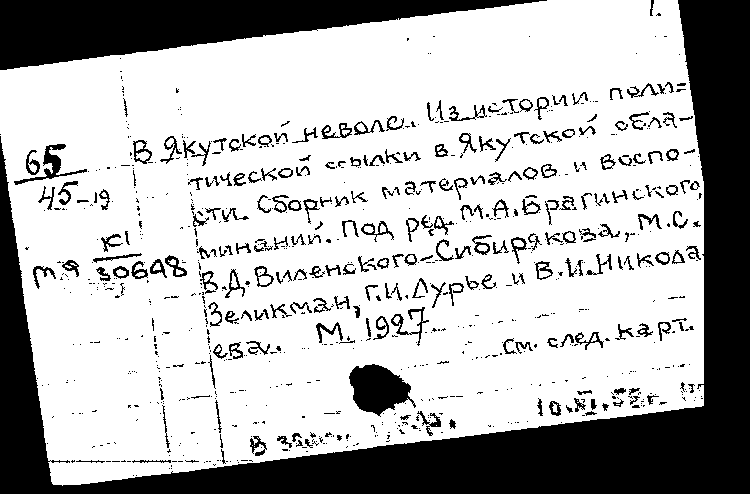 1.
65
45-19
В Якутской неволе. Из истории поли=
тической ссылки в Якутской обла-
сти. Сборник материалов и воспо-
минаний. Под ред. М.А.Брагинского,
В.Д.Виленского-Сибирякова, М.С.
Зеликман, Г.И.Лурье и В.И.Никола
ева. М. 1927
КI
30648
см. след. карт.
10.XI.